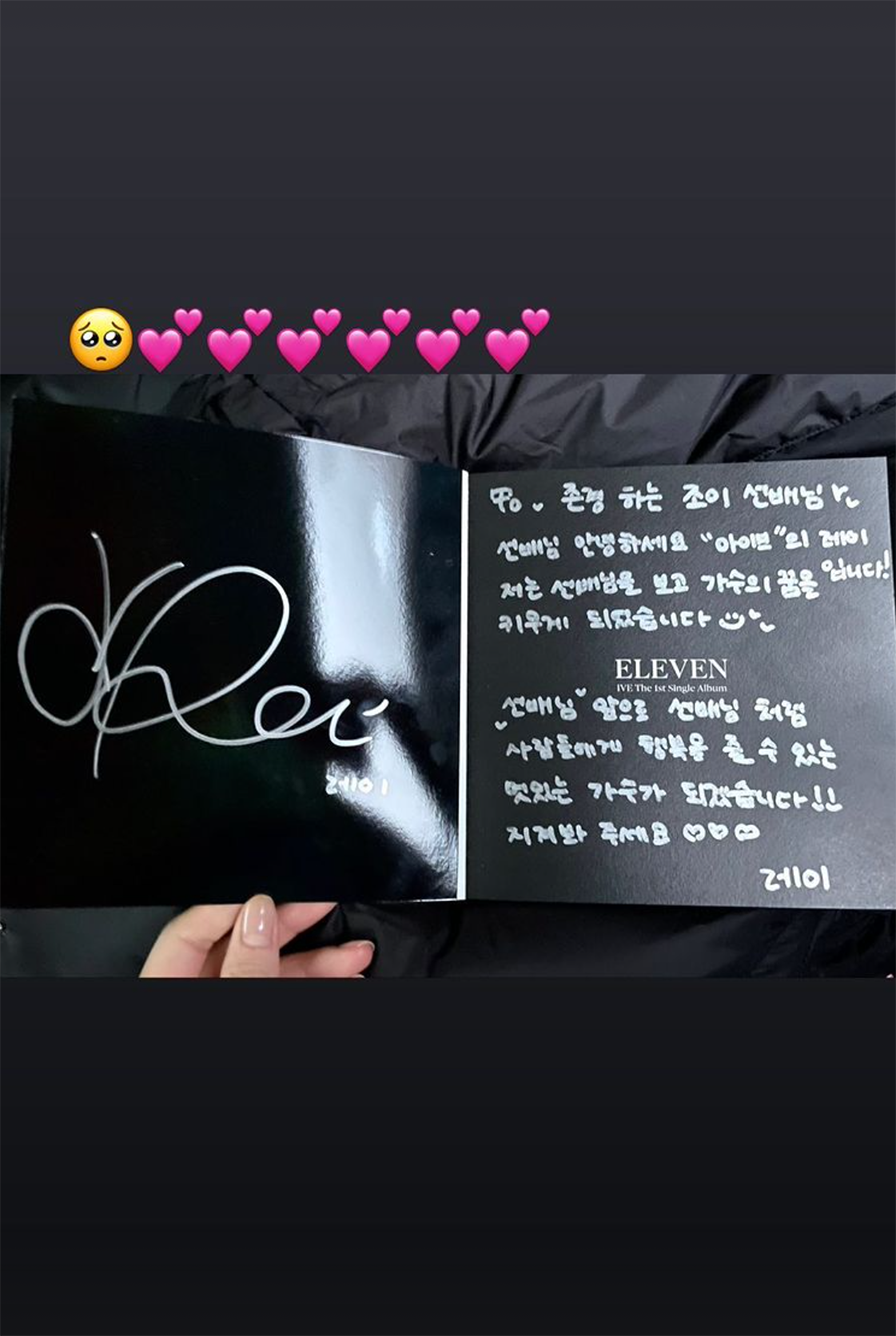 Rei
레이
To. 존경 하는 조이 선배님
선배님 안녕하세요 "아이브"의 레이
입니다!
저는 선배님을 보고 가수의 꿈을
키우게 되었습니다
ELEVEN
IVE The 1st Single Album
선배님 앞으로 선배님 처럼
사람들에게 행복을 줄 수 있는
멋있는 가수가 되겠습니다!!
지켜봐 주세요 ♡♡♡
레이